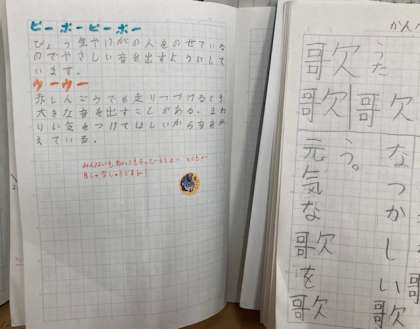 ピーポーピーポー
びょう気やけがの人をのせている
のでやさしい音を出すようにして
います。
ウーウー
赤しんごうでも走りつづけるとき
大きな音を出すことがある。まわ
りに気をつけてほしいから音をか
えている。
かんべ
歌 うた
歌 歌
なつかしい歌
う。
元気な歌を歌